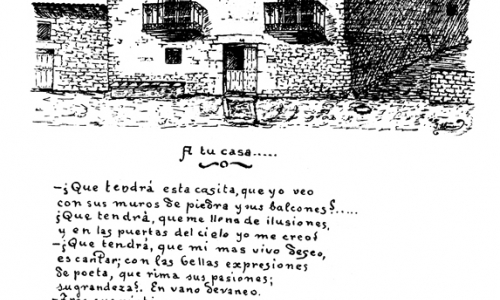 A tu casa.....
-¡Que tendrá esta casita, que yo veo
con sus muros de piedra y sus balcones!.....
¡Que tendrá, que me llena de ilusiones,
y en las puertas del cielo yo me creo!
-¡Que tendrá, que mi mas vivo deseo,
es cantar; con las bellas expresiones
de poeta, que rima sus pasiones;
su grandeza!. En vano devaneo.